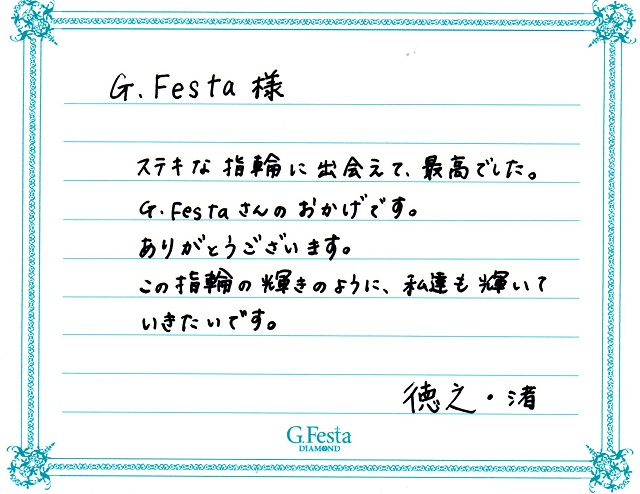 G.Festa 様
ステキな指輪に出会えて、最高でした。
G.Festaさんのおかげです。
ありがとうございます。
この指輪の輝きのように、私達も輝いて
いきたいです。
徳之・渚
G.Festa
DIAMOND